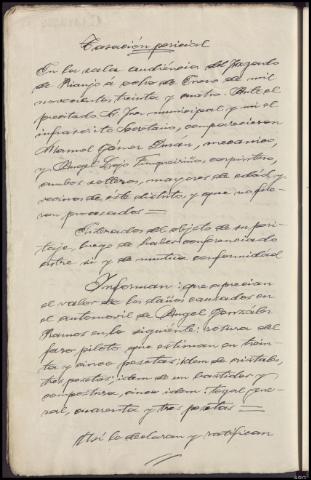 Tasación pericial
En la sala audiencia del Juzgado
de Rianjo á ocho de Enero de mil
novecientos treinta y cuatro. Ante el
precitado Sr. Juez municipal y mi el
infrascrito Secretario, comparecieron
Manuel Gómez Durán, mecánico,
y Angel Lojo carpintero,
ambos solteros, mayores de edad y
vecinos de este distrito, y que no fue-
ron procesados =
Enterados del objeto de su peri-
taje, luego de haber conferenciado
entre sí y de mutua conformidad
Informan: que aprecian
el valor de los daños causados en
el automovil de Angel González
Ramos en lo siguiente: rotura del
faro piloto que estiman en trein-
ta y cinco pesetas; idem de cristales,
tres pesetas; idem de un bastidor y
compostura, cinco idem: total gene-
ral, cuarenta y tres pesetas =
Así lo declaran y ratifican